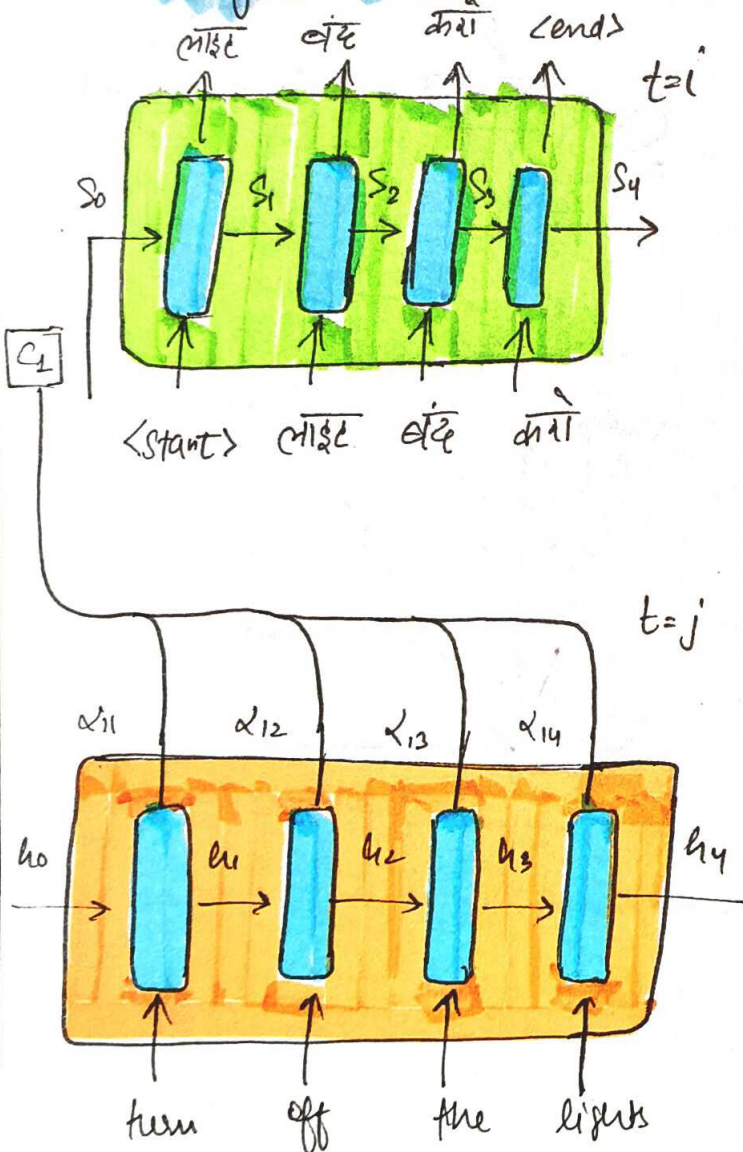 लाइट बंद करो <end>
t=i
S₀ S₁ S₂ S₃ S₄
C₁
<start> लाइट बंद करो
t=j
α₁₁ α₁₂ α₁₃ α₁₄
h₀ h₁ h₂ h₃ h₄
turn off the lights